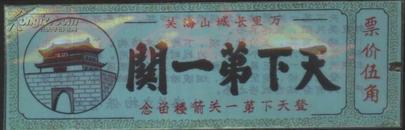 万里长城山海关
天下第一関
登天下第一关箭楼留念
票价伍角